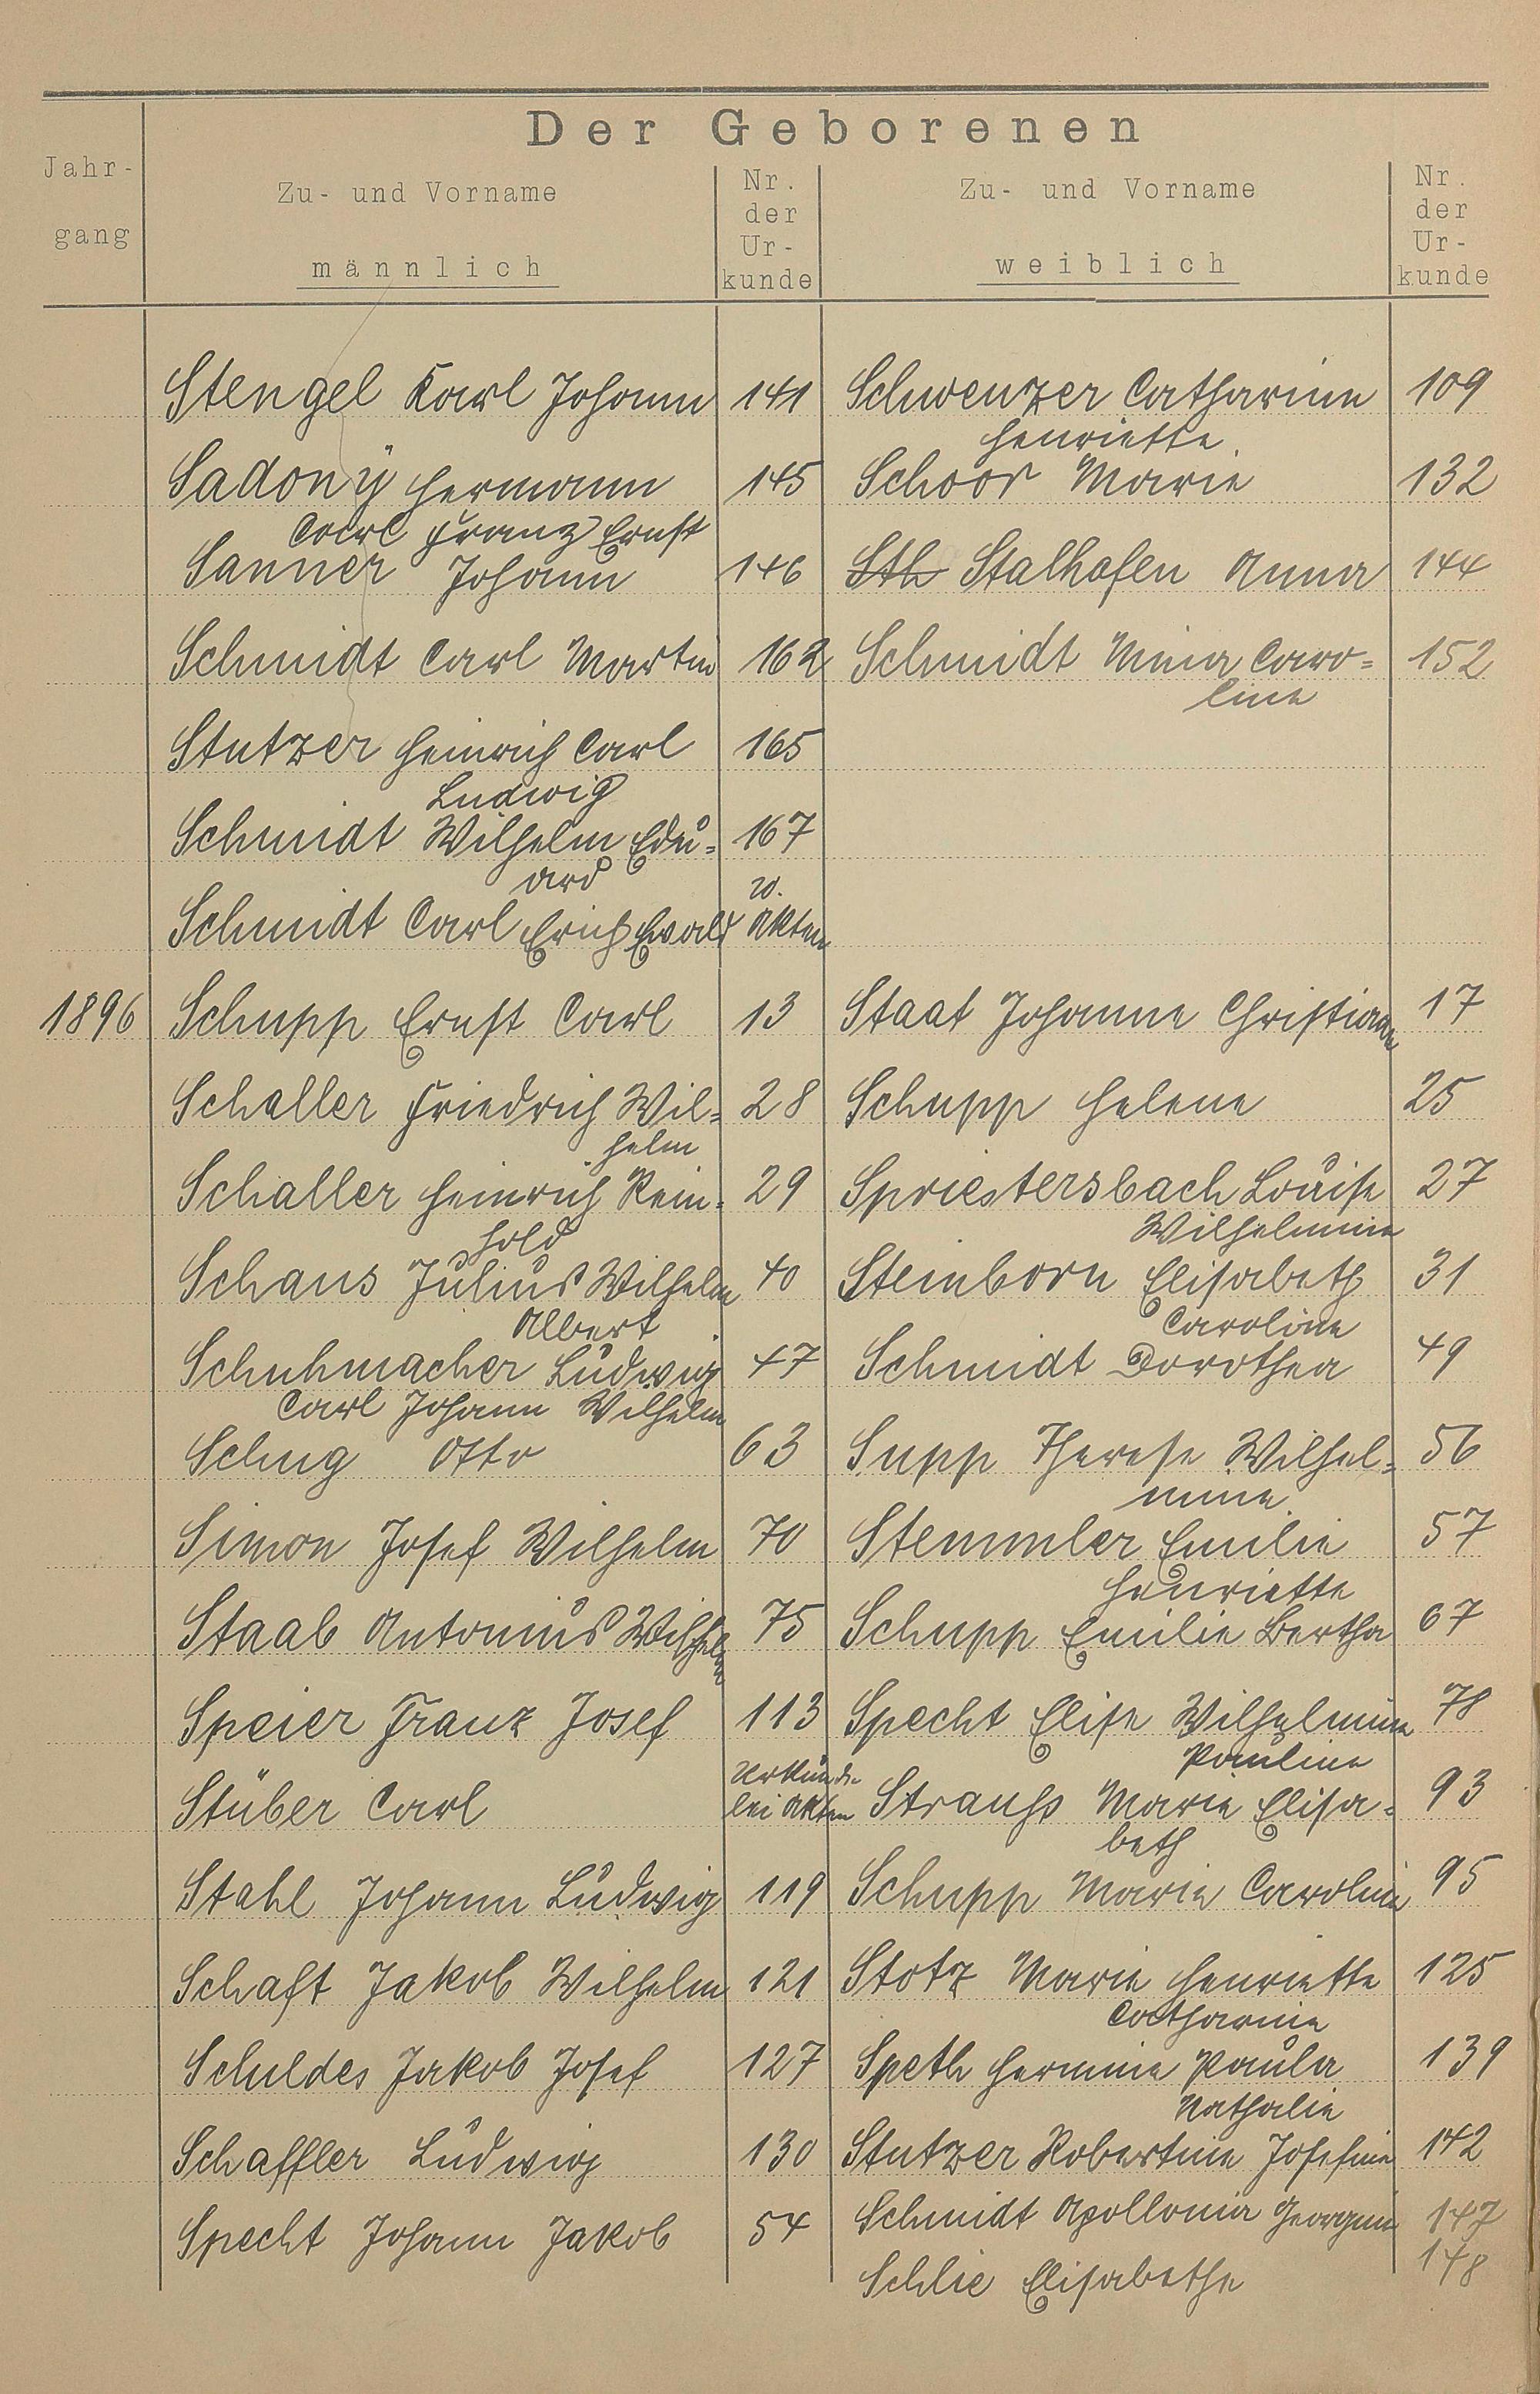 Der Geborenen
Jahr-
gang
Zu- und Vorname
männlich
Nr.
der
Ur-
kunde
Zu- und Vorname
weiblich
Nr.
der
Ur-
kunde
Stengel Karl Johann 141 Schwenzer Catharine 109
Henriette
Sadony Hermann 145 Schoor Marie 132
Carl Franz Ernst
Sanner Johann 146 Sth Stalhofen Anna 144
Schmidt Carl Martin 162 Schmidt Mina Caro= 152
line
Stutzer Heinrich Carl 165
Ludwig
Schmidt Wilhelm Edu= 167
ard
Schmidt Carl Erich Ewald Akten
1896 Schupp Ernst Carl 13 Staat Johanne Christiane 17
Schaller Friedrich Wil= 28 Schupp Helene 25
helm
Schaller Heinrich Rein= 29 Spriestersbach Louise 27
hold Wilhelmine
Schaus Julius Wilhelm 40 Steinborn Elisabeth 31
Albert Caroline
Schuhmacher Ludwig 47 Schmidt Dorothea 49
Carl Johann Wilhelm
Schug Otto 63 Supp Therese Wilhel= 56
mine
Simon Josef Wilhelm 70 Stemmler Emilie 57
Henriette
Staab Antonius Wilhelm 75 Schupp Emilie Bertha 67
Speier Franz Josef 113 Specht Elise Wilhelmine 78
Pauline
Stüber Carl Urkunde
bei Akten Strauss Marie Elisa= 93
beth
Stahl Johann Ludwig 119 Schupp Marie Caroline 95
Schaft Jakob Wilhelm 121 Stotz Marie Henriette 125
Catharine
Schuldes Jakob Josef 127 Speth Hermine Paula 139
Nathalie
Schaffler Ludwig 130 Stutzer Robertine Josefine 142
Specht Johann Jakob 54 Schmidt Apollonia Georgine 147
Schlie Elisabethe 148